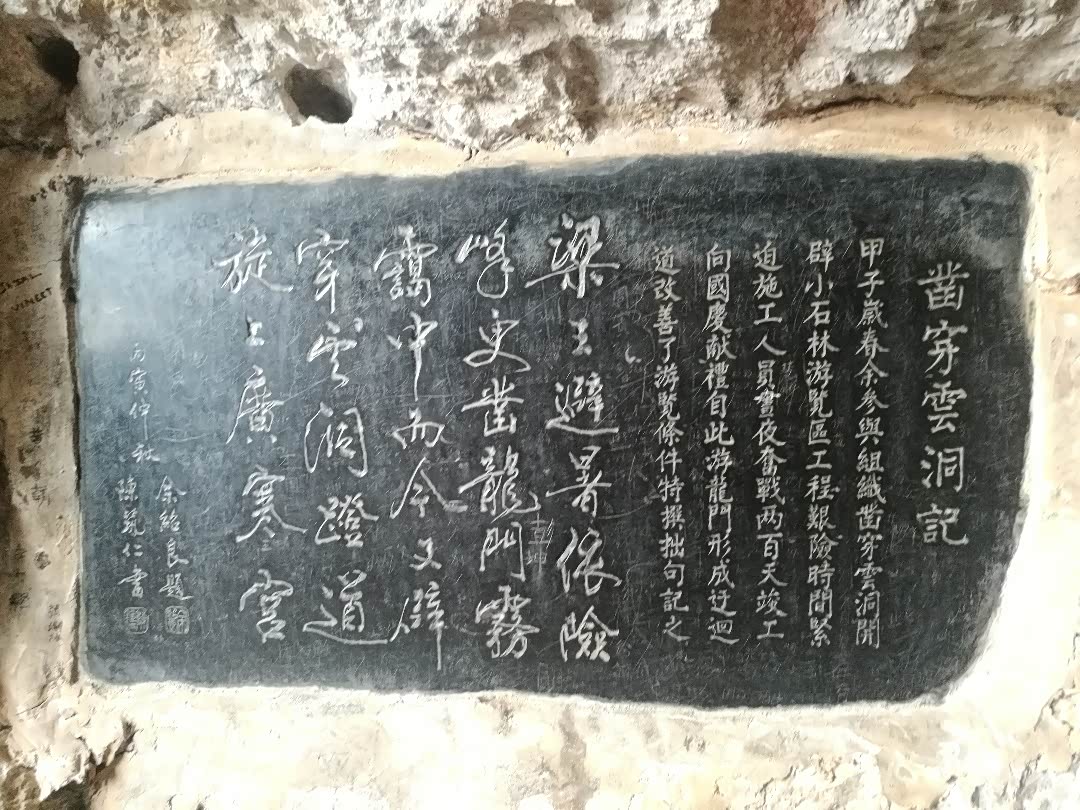 凿穿雲洞記
甲子歲春余参與組織凿穿雲洞開
辟小石林游覧區工程艱險時間緊
迫施工人員晝夜奮戰两百天竣工
向國慶献禮自此游龍門形成迂迴
道改善了游覧條件特撰拙句記之
梁王避暑依險
峰更凿龍門霧
靄中而今又辟
穿雲洞蹬道
旋上廣寒宮
丙寅仲秋
余紹良題
陳仁書